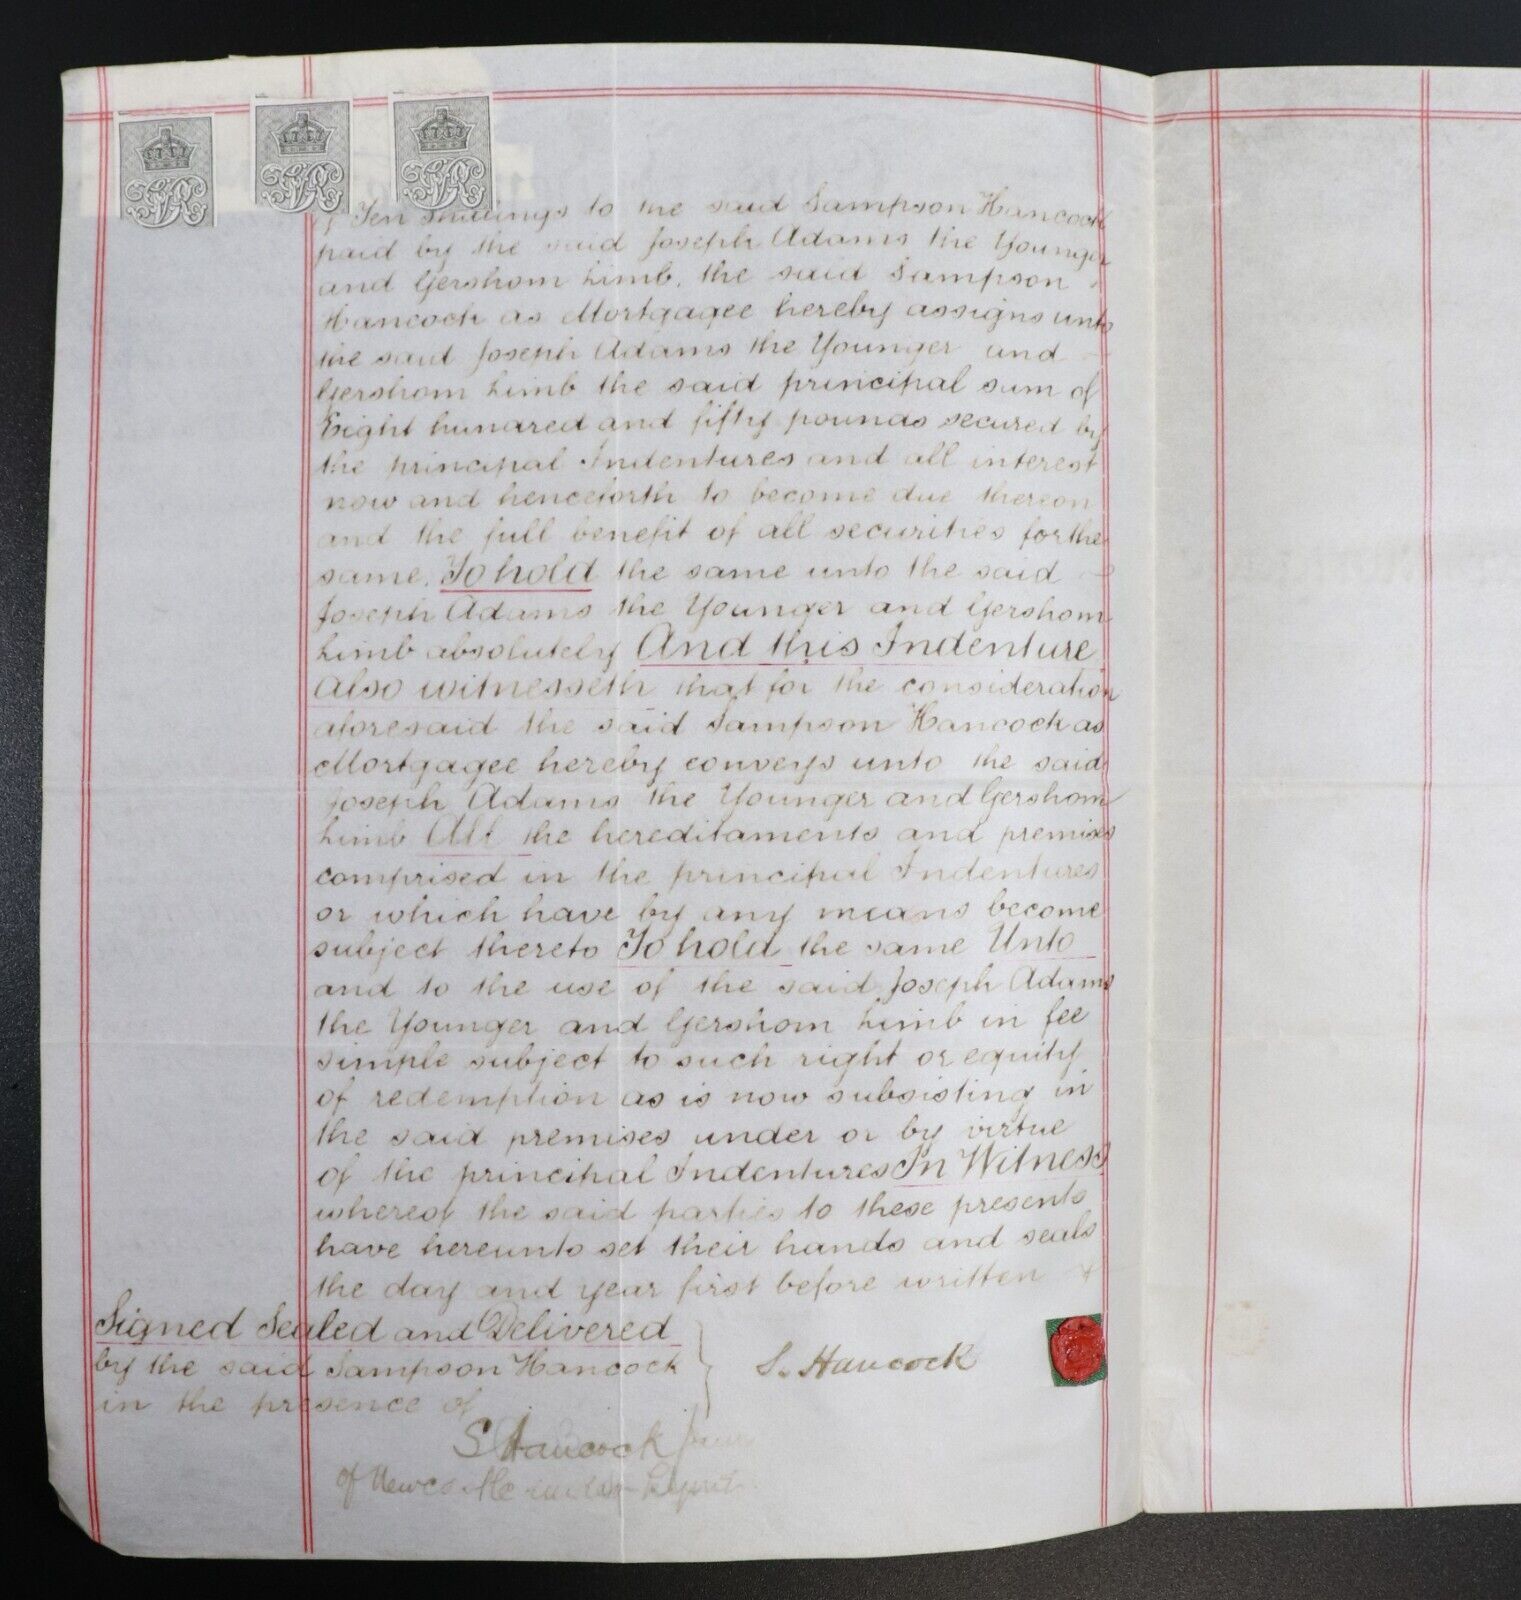 of Ten Shillings to the said Sampson Hancock
paid by the said Joseph Adams the Younger
and Gershom Limb, the said Sampson
Hancock as Mortgagee hereby assigns unto
the said Joseph Adams the Younger and
Gershom Limb the said principal sum of
Eight hundred and fifty pounds secured by
the principal Indentures and all interest
now and henceforth to become due thereon
and the full benefit of all securities for the
same. To hold the same unto the said
Joseph Adams the Younger and Gershom
Limb absolutely And this Indenture
also witnesseth that for the consideration
aforesaid the said Sampson Hancock as
Mortgagee hereby conveys unto the said
Joseph Adams the Younger and Gershom
Limb All the hereditaments and premises
comprised in the principal Indentures
or which have by any means become
subject thereto To hold the same Unto
and to the use of the said Joseph Adams
the Younger and Gershom Limb in fee
simple subject to such right or equity
of redemption as is now subsisting in
the said premises under or by virtue
of the principal Indentures In Witness
whereof the said parties to these presents
have hereunto set their hands and seals
the day and year first before written
Signed Sealed and Delivered
by the said Sampson Hancock
in the presence of
S. Hancock
S Hancock
of